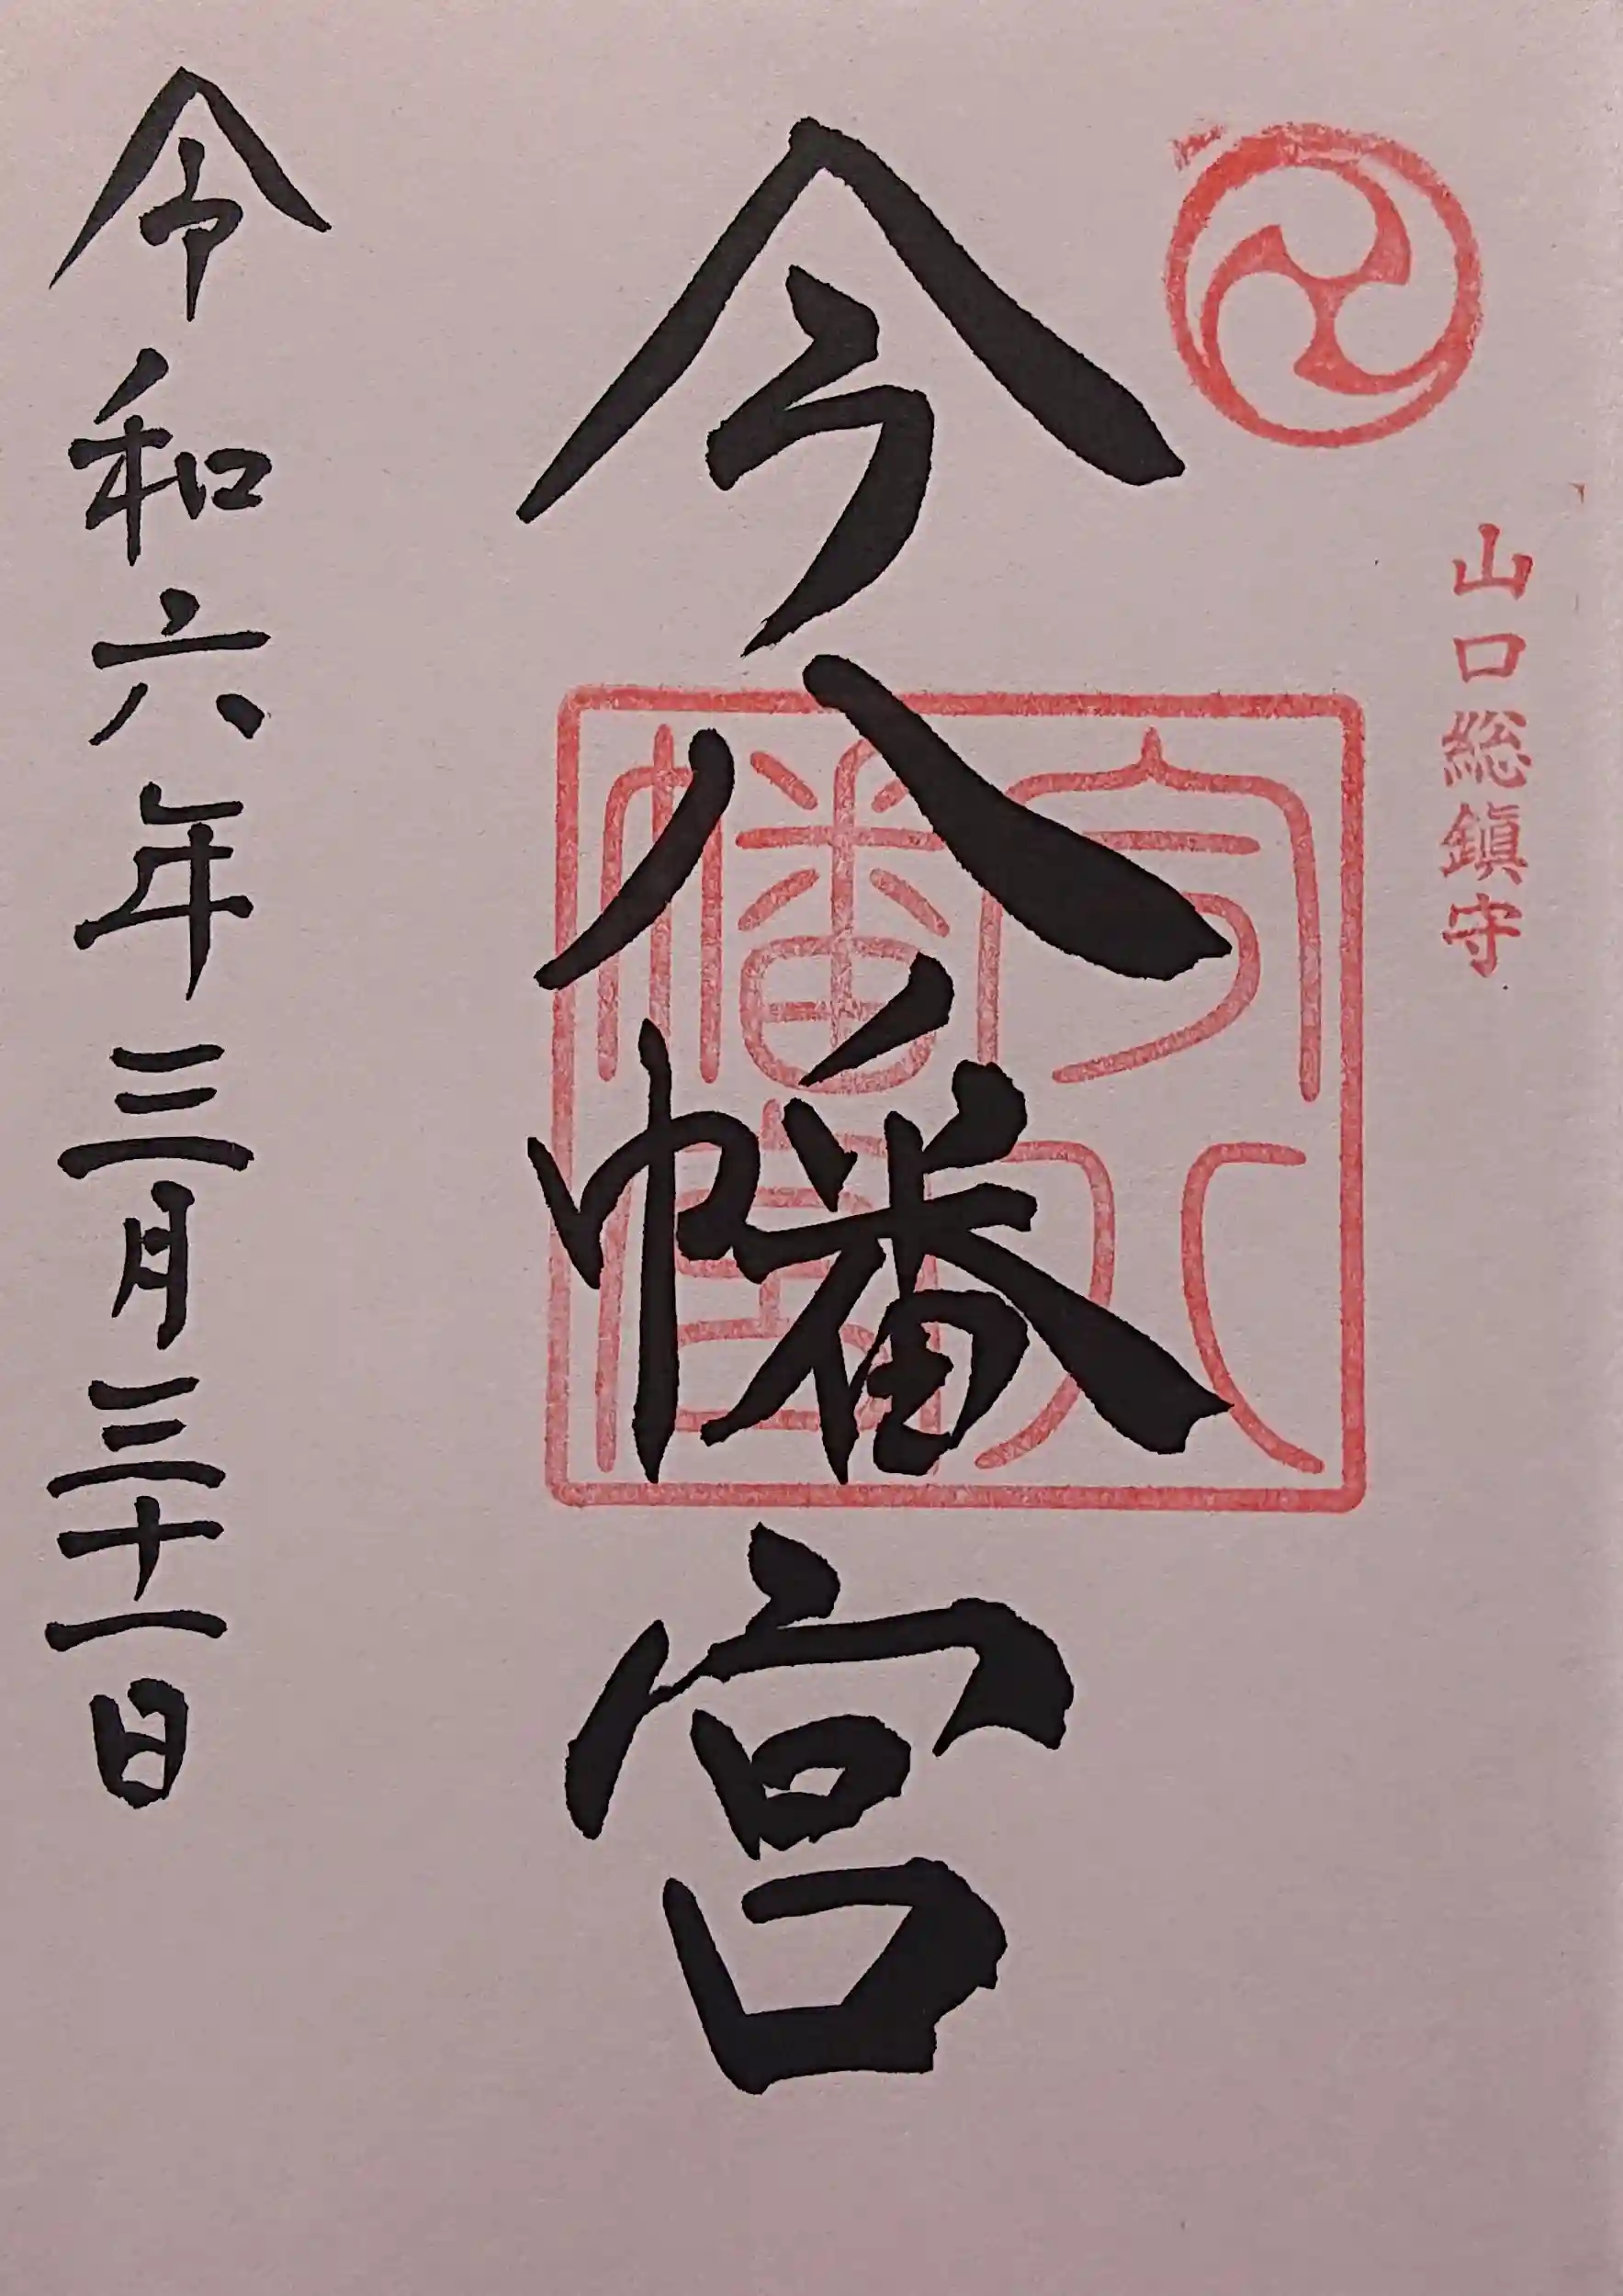 山口総鎮守
今八幡宮
今八幡宮
令和六年三月三十一日